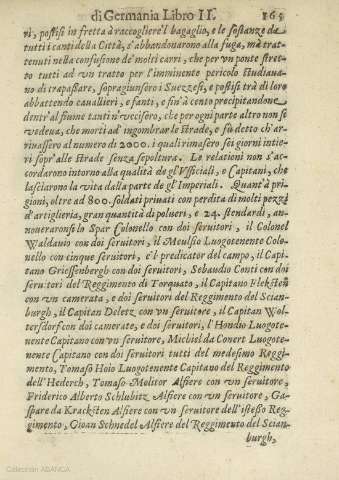 di Germania Libro II. 163
vi, postisi in fretta à raccogliere'l bagaglio, e le sostanze da
tutti i canti della Città, s'abbandonarono alla fuga, mà trat-
tenuti nella confusione de' molti carri, che per vn ponte stret-
to tutti ad vn tratto per l'imminente pericolo studiaua-
no di trapassare, sopragiunsero i Suezzesi, e postisi trà di loro
abbattendo cauallieri, e fanti, e fin'à cento precipitandone
dentr'al fiume tanti n'vccisero, che per ogni parte altro non se
vedeua, che morti ad'ingombrar le strade, e fù detto ch'ar-
riuassero al numero di 2000. i quali rimasero sei giorni intie-
ri sopr'alle strade senza sepoltura. Le relationi non s'ac-
cordarono intorno alla qualità de gl'Vfficiali, e Capitani, che
lasciarono la vita dalla parte de gl'Imperiali. Quant'à pri-
gioni, oltre ad 800. soldati priuati con perdita di molti pezzi
d'artiglieria, gran quantità di polueri, e 24. stendardi, an-
noueraronsi lo Spar Colonello con doi seruitori, il Colonel
Waldauio con doi seruitori, il Meulsio Luogotenente Colo-
nello con cinque seruitori, e'l predicator del campo, il Capi-
tano Griessenbergh con doi seruitori, Sebaudio Conti con doi
seruitori del Regimento di Torquato, il Capitano Flekstein
con vn camerata, e doi seruitori del Reggimento del Scian-
burgh, il Capitan Doletz con vn seruitore, il Capitan Wol-
tersdorf con doi camerate, e doi seruitori, l'Hondio Luogote-
nente Capitano con vn seruitore, Michiel da Conert Luogote-
nente Capitano con doi seruitori tutti del medesimo Reggi-
mento, Tomaso Hoio Luogotenente Capitano del Reggimento
dell'Hederch, Tomaso Melitor Alfiere con vn seruitore,
Friderico Alberto Schlubitz Alfiere con vn seruitore, Ga-
spare da Krackten Alfiere con vn seruitore dell'istesso Reg-
gimento, Gioan Schnedel Alfiere del Reggimento del Scian-
burgh,
Colección ABANCA